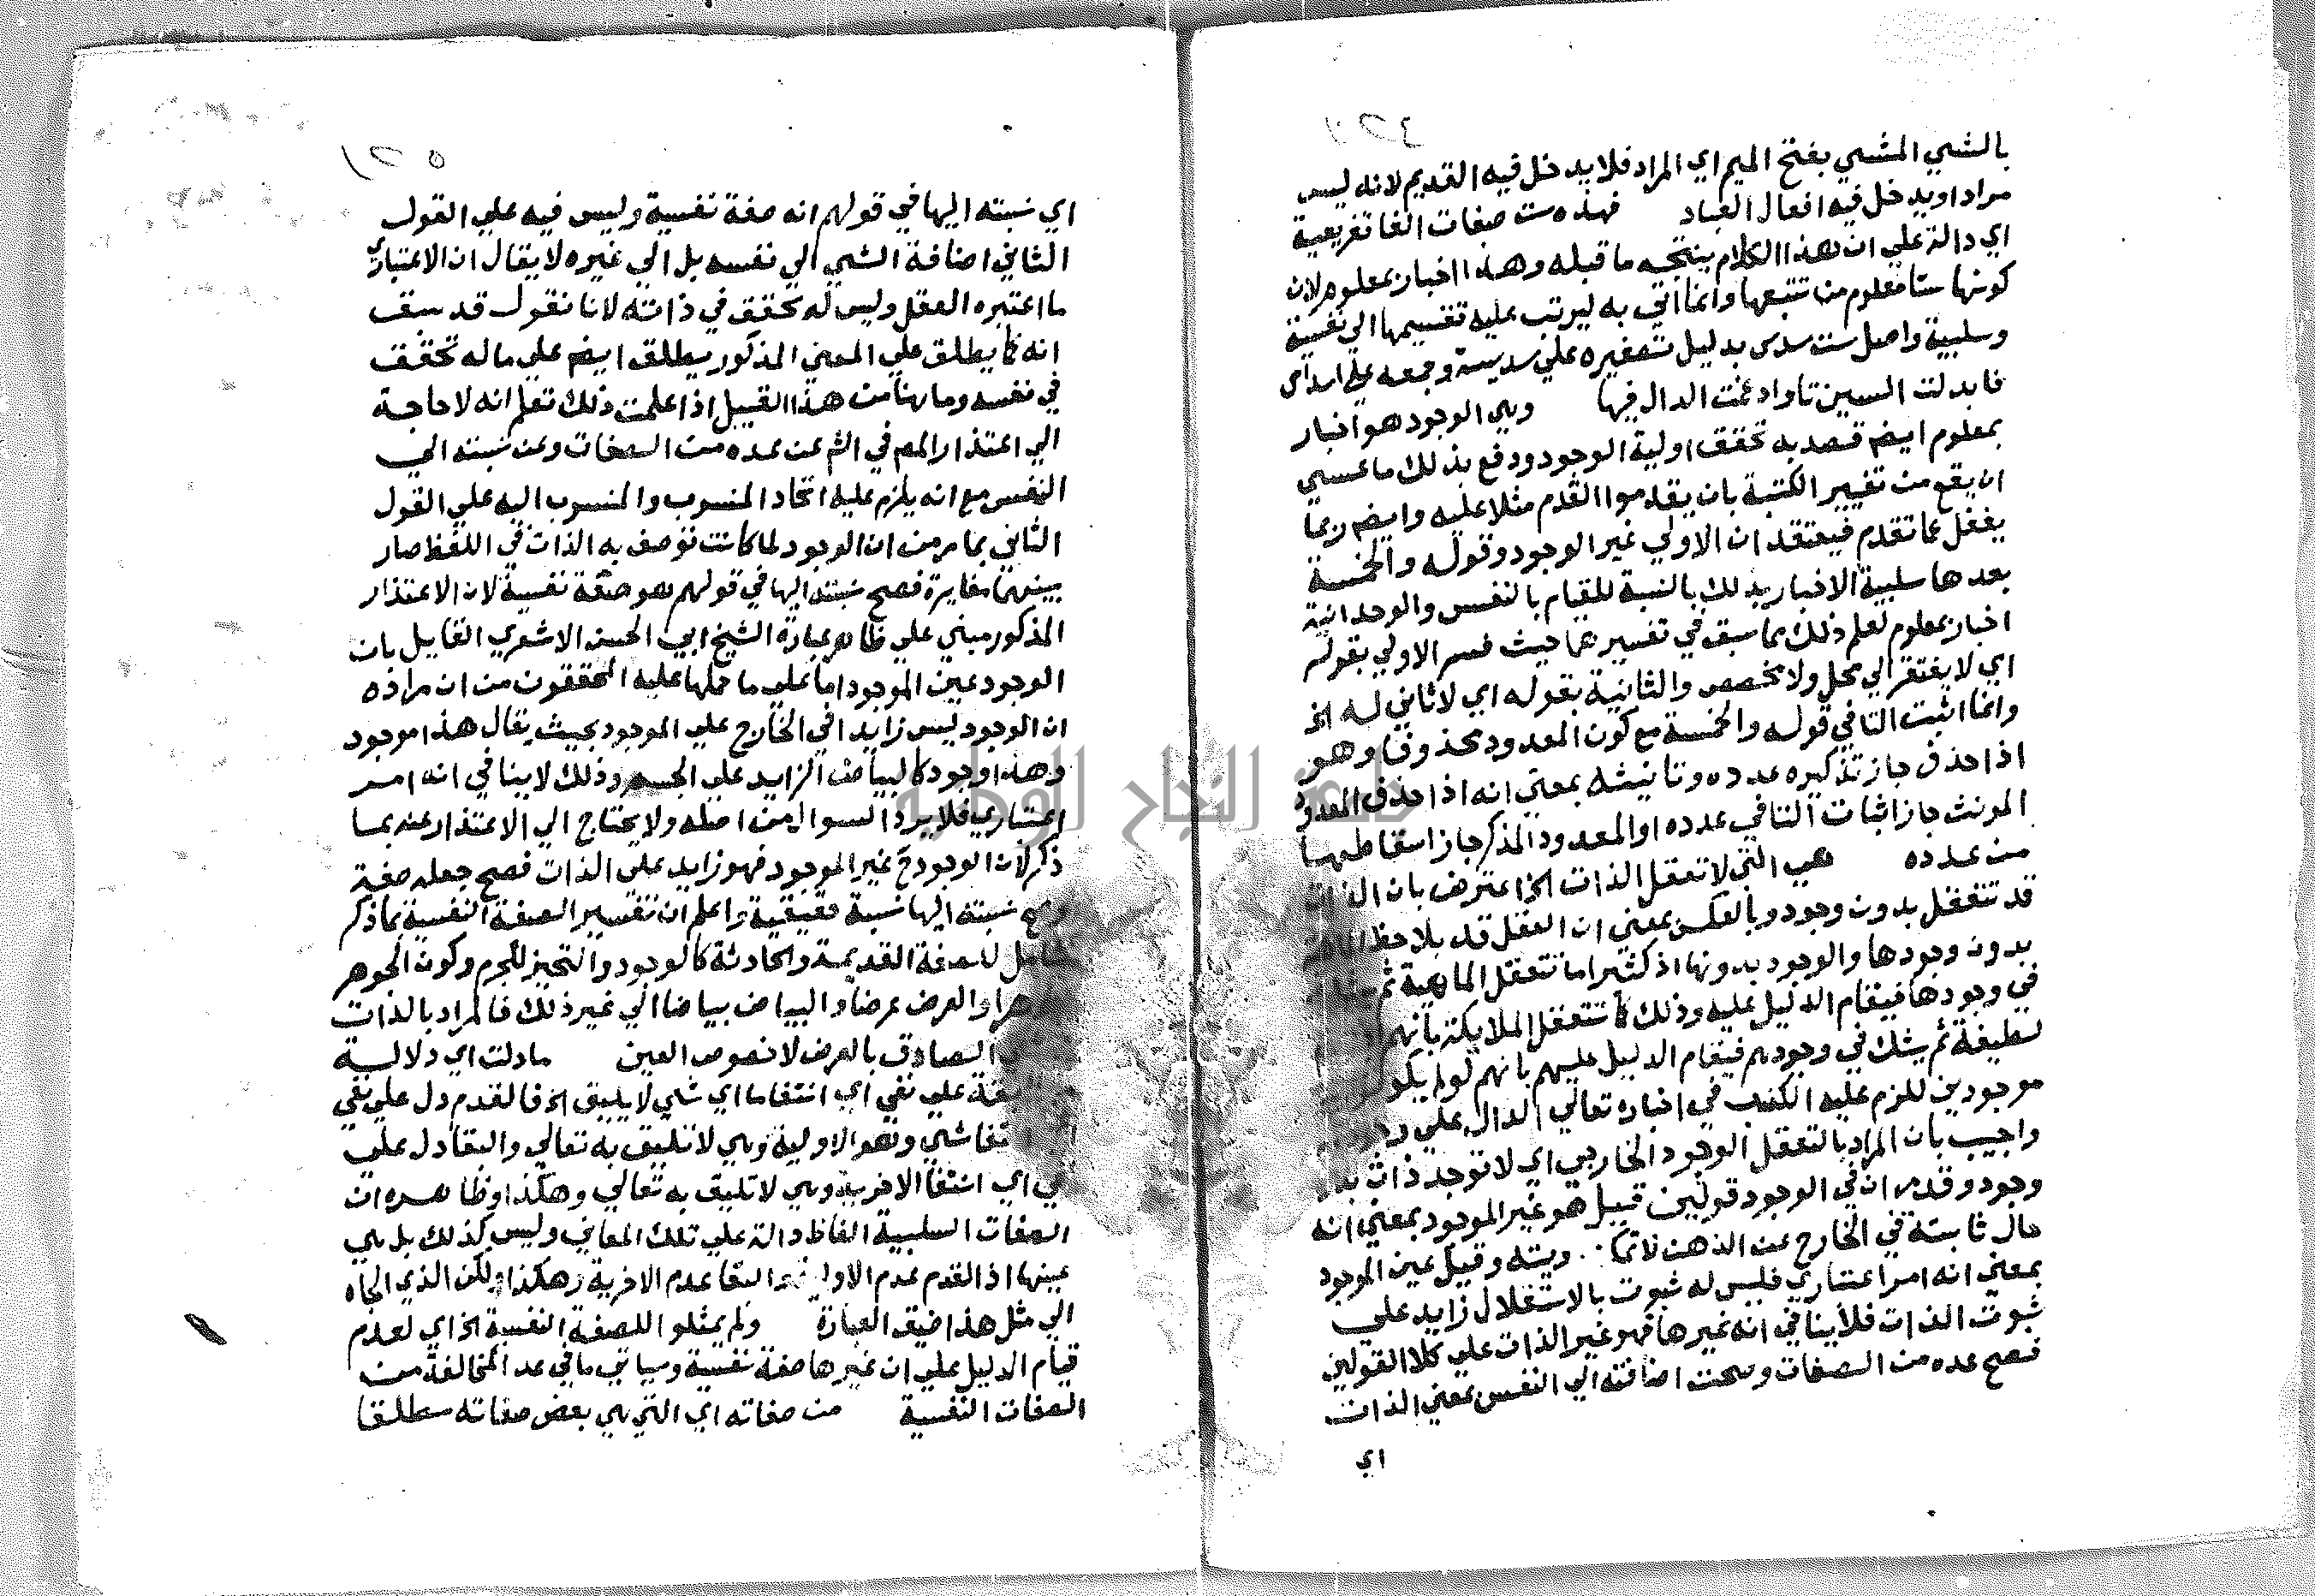 بالشيي المشيي بفتح الميم اي المراد فلا يدخل فيه القديم لانه ليس
مرادا ويدخل فيه افعال العباد فهذه ست صفات الفا تفريعية
اي دالة علي ان هذا الكلام ينتجه ما قبله وهذا اخبار بمعلوم لان
كونها ستا معلوم من تتبعها وانما اتي به ليرتب عليه تقسيمها الي نفسية
وسلبية واصل ست سدس بدليل تصغيره علي سديسة وجمعه علي اسداس
فابدلت السين تا وادغمت الدال فيها وهي الوجود هو اخبار
بمعلوم ايضم قصد به تحقق اولية الوجود ودفع بذلك ما عسي
ان يقع من تغيير الكتبة بان يقدموا القدم مثلا عليه وايضم ربما
يغفل عما تقدم فيعتقد ان الاولي غير الوجود وقوله والخمسة
بعدها سلبية الاخبار بذلك بالنسبة للقيام بالنفس والوحدانية
اخبار بمعلوم لعلم ذلك مما سبق في تفسيرهما حيث فسر الاولي بقوله
اي لا يفتقر الي محل ولا مخصص والثانية بقوله اي لا ثاني له الخ
وانما اثبت التا في قوله والخمسة مع كون المعدود محذوفا وهو
اذا حذف جاز تذكيره عدده وتانيثه بمعني انه اذا حذف المعدود
المونث جاز اثبات التا في عدده او المعدود المذكر جاز اسقاطها
من عدده هي التي لا تعقل الذات الخ اعترض بان الذات
قد تتعقل بدون وجود وبالعكس بمعني ان العقل قد يلاحظ الماهية
بدون وجودها والوجود بدونها اذ كثيرا ما تتعقل الماهية ثم
في وجودها فيقام الدليل عليه وذلك كما تتعقل الملايكة بانهم
لطيفة ثم يشك في وجودهم فيقام الدليل عليهم بانهم لو لم يكونوا
موجودين للزم عليه الكذب في اخباره تعالي الدال علي
واجيب بان المراد بالتعقل الوجود الخارجي اي لا توجد ذات
وجود وقد مر ان في الوجود قولين قيل هو غير الموجود بمعني انه
حال ثابتة في الخارج عن الذهن وقيل عين الموجود
بمعني انه امر اعتباري فليس له ثبوت بالاستقلال زايد علي
ثبوت الذات فلا ينافي انه غيرها فهو غير الذات علي كلا القولين
فصح عده من الصفات وصحت اضافته الي النفس بمعني الذات
اي
اي نسبته اليها في قولهم انه صفة نفسية وليس فيه علي القول
الثاني اضافة الشيي الي نفسه بل الي غيره لا يقال ان الاعتباري
ما اعتبره العقل وليس له تحقق في ذاته لانا نقول قد سبق
انه كما يطلق علي المعني المذكور يطلق ايضم علي ما له تحقق
في نفسه وما هنا من هذا القبيل اذا علمت ذلك تعلم انه لا حاجة
الي اعتذار المص في الشم عن عده من الصفات وعن نسبته الي
النفس مع انه يلزم عليه اتحاد المنسوب والمنسوب اليه علي القول
الثاني بما مر من ان الوجود لما كانت توصف به الذات في اللفظ صار
بينهما مغايرة فصح نسبته اليها في قولهم هو صفة نفسية لان الاعتذار
المذكور مبني علي ظاهر عبارة الشيخ ابي الحسن الاشعري القايل بان
الوجود عين الموجود اما علي ما حملها عليه المحققون من ان مراده
ان الوجود ليس زايدا في الخارج علي الموجود بحيث يقال هذا موجود
وهذا وجود كالبياض الزايد علي الجسم وذلك لا ينافي انه امر
اعتباري فلا يرد السوال من اصله ولا يحتاج الي الاعتذار عنه بما
ذكر لان الوجود ح غير الموجود فهو زايد علي الذات فصح جعله صفة
نسبته اليها نسبة حقيقية واعلم ان تفسير الصفة النفسية بما ذكر
للصفة القديمة والحادثة كالوجود والتحيز للجرم وكون الجوهر
والعرض عرضا والبياض بياضا الي غير ذلك فالمراد بالذات
الصادق بالعرض لا خصوص العين ما دلت اي دلالة
علي نفي اي انتفا ما اي شيي لا يليق الخ فالقدم دل علي نفي
شيي وهو الاولية وهي لا تليق به تعالي والبقا دل علي
اي انتفا الاخرية وهي لا تليق به تعالي وهكذا وظاهره ان
الصفات السلبية الفاظ دالة علي تلك المعاني وليس كذلك بل هي
عينها اذ القدم عدم الاولية والبقا عدم الاخرية وهكذا ولكن الذي الجاه
الي مثل هذا ضيق العبارة ولم يمثلوا للصفة النفسية الخ اي لعدم
قيام الدليل علي ان غيرها صفة نفسية وسياتي ما في عد المخالفة من
الصفات النفسية من صفاته اي التي هي بعض صفاته مطلقا
جامعة النجاح الوطنية